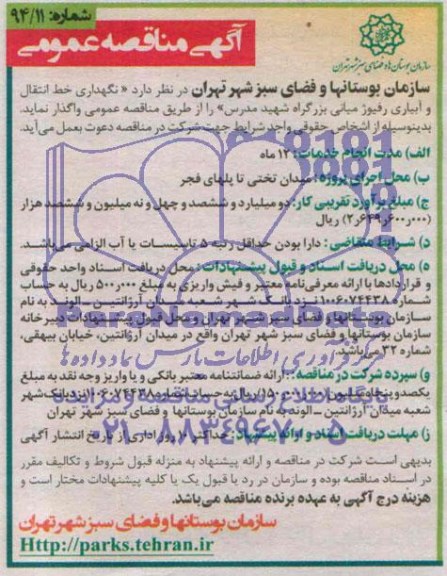 شماره: ۹۴/۱۱
آگهی مناقصه عمومی
سازمان بوستان‌ها و فضای سبز شهر تهران
سازمان بوستانها و فضای سبز شهر تهران در نظر دارد « نگهداری خط انتقال
و آبیاری رفیوژ میانی بزرگراه شهید مدرس» را از طریق مناقصه عمومی واگذار نماید.
بدینوسیله از اشخاص حقوقی واجد شرایط جهت شرکت در مناقصه دعوت بعمل می‌آید.
الف) مدت انجام خدمات: ۱۲ ماه
ب) محل اجرای پروژه: میدان تختی تا پلهای فجر
ج) مبلغ برآورد تقریبی کار: دو میلیارد و ششصد و چهل و نه میلیون و ششصد هزار
(۲٫۶۴۹٫۶۰۰٫۰۰۰) ریال
د) شرایط متقاضی: دارا بودن حداقل رتبه ۵ تاسیسات یا آب الزامی می‌باشد.
ه) محل دریافت اسناد و قبول پیشنهادات: محل دریافت اسناد واحد حقوقی
و قراردادها با ارائه معرفی‌نامه معتبر و فیش واریزی به مبلغ ۵۰۰٫۰۰۰ ریال به حساب
شماره ۱۰۰۶۰۷۴۴۳۸ نزد بانک شهر شعبه میدان آرژانتین ـ الوند به نام
سازمان بوستانها و فضای سبز شهر تهران و محل قبول پیشنهادات دبیرخانه
سازمان بوستانها و فضای سبز شهر تهران واقع در میدان آرژانتین، خیابان بیهقی،
شماره ۳۲ می‌باشد.
و) سپرده شرکت در مناقصه: ارائه ضمانتنامه معتبر بانکی و یا واریز وجه نقد به مبلغ
یکصد و پنجاه میلیون ریال به حساب شماره ۱۰۰۶۰۷۴۴۳۸ نزد بانک شهر
شعبه میدان آرژانتین ـ الوند به نام سازمان بوستانها و فضای سبز شهر تهران
ز) مهلت دریافت اسناد و ارائه پیشنهاد: حداکثر روز اداری از تاریخ انتشار آگهی
بدیهی است شرکت در مناقصه و ارائه پیشنهاد به منزله قبول شروط و تکالیف مقرر
در اسناد مناقصه بوده و سازمان در رد یا قبول یک یا کلیه پیشنهادات مختار است و
هزینه درج آگهی به عهده برنده مناقصه می‌باشد.
سازمان بوستانها و فضای سبز شهر تهران
Http://parks.tehran.ir
ParsNamadData
گردآوری اطلاعات پارس نماد داده‌ها
۰۲۱-۸۸۳۴۹۶۷۰-۵